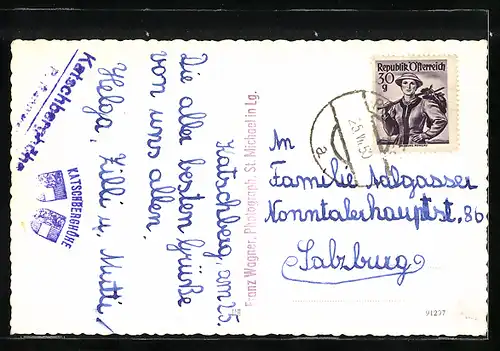 Katschberghöhe
KATSCHBERGHÖHE
Katschberg, am 25.
Die aller besten Grüße
von uns allen.
Helga, Zilli u. Mutti!
Franz Wagner, Photograph, St. Michael in Lg.
Republik Österreich
30
g
25.
50
a
An
Familie Nalgasser
Nonntalerhauptst. 86
Salzburg
91297